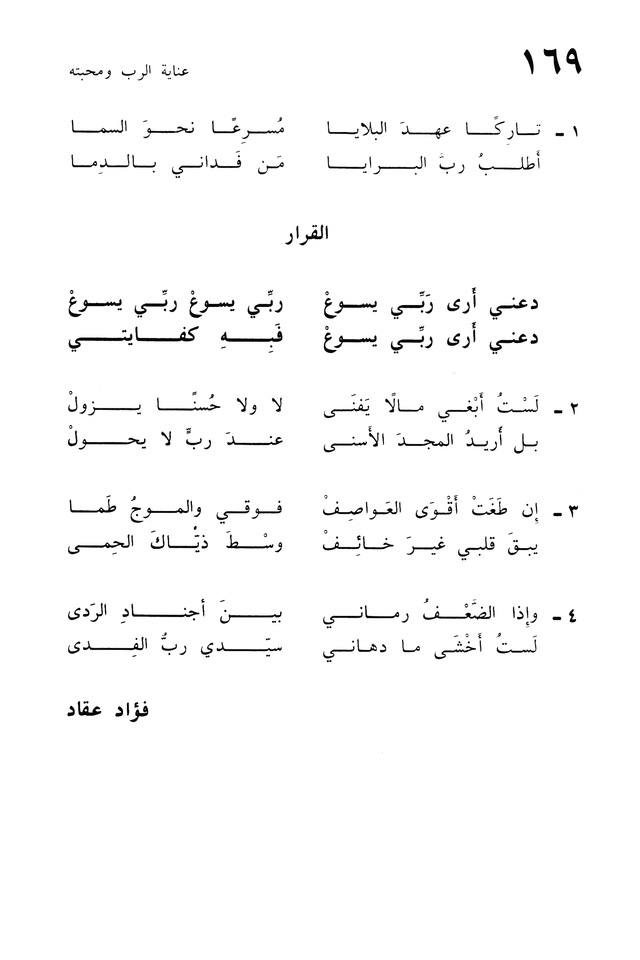 ١٦٩
عناية الرب ومحبته
١ - تـارِكًـا عهـدَ البلايـا مُسـرِعًـا نحـوَ السمـا
أَطلـبُ ربَّ البـرايـا مَـن فَـدانـي بـالـدِمـا
القرار
دعنـي أَرى رَبِّـي يسـوعْ ربِّـي يسـوعْ ربِّـي يسـوعْ
دعنـي أَرى ربِّـي يسـوعْ فَبِـهِ كفـايتـي
٢ - لَسْـتُ أَبْغـي مـالًا يَفنَـى لا ولا حُسنًـا يـزولْ
بـل أُريـدُ المجـدَ الأَسنـى عنـدَ ربٍّ لا يحـولْ
٣ - إِن طَغَتْ أَقْوَى العَواصِفْ فـوقـي والمـوجُ طَمـا
يبـقَ قلبـي غيـرَ خـائِـفْ وسْـطَ ذيّـاكَ الحِمـى
٤ - وإِذا الضَّعْـفُ رمـانـي بيـنَ أجنـادِ الرَدى
لَسـتُ أَخْشَـى مـا دهـانـي سيّـدي ربُّ الفِـدى
فؤاد عقاد